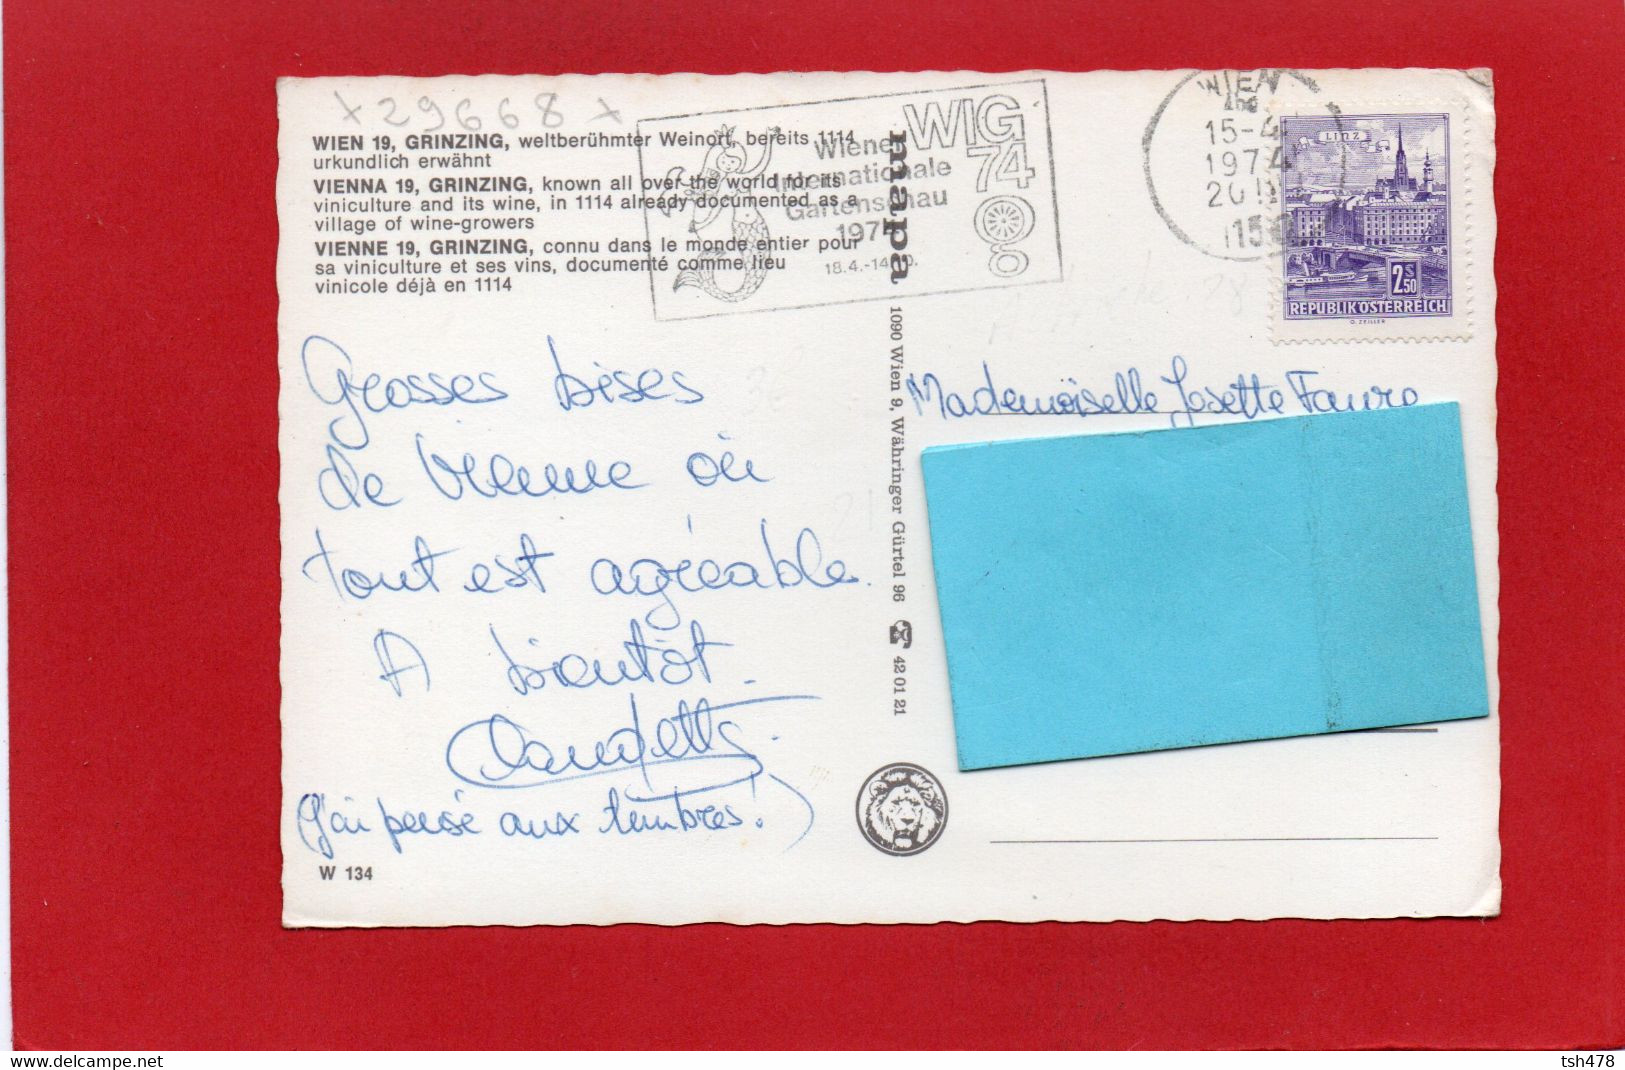 x 29668 x
WIEN 19, GRINZING, weltberühmter Weinort, bereits 1114
urkundlich erwähnt
VIENNA 19, GRINZING, known all over the world for its
viniculture and its wine, in 1114 already documented as a
village of wine-growers
VIENNE 19, GRINZING, connu dans le monde entier pour
sa viniculture et ses vins, documenté comme lieu
vinicole déjà en 1114
WIG
74
Wiener
Internationale
Gartenschau
1974
18.4.-14.10.
WIEN
15-4
1974
20
1150
LINZ
2S50
REPUBLIK ÖSTERREICH
O. ZEILLER
mapa 1090 Wien 9, Währinger Gürtel 96 42 01 21
Grosses bises
de Vienne où
tout est agréable.
A bientôt.
Claudette
(J'ai pensé aux timbres!)
Mademoiselle Josette Faure
W 134
delcampe.net
tsh478